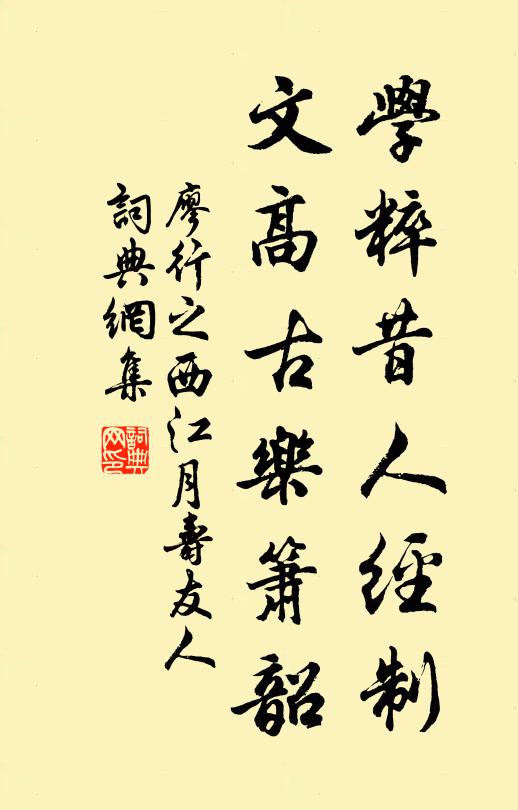 學粹昔人經制
文高古樂簫韶
廖行之西江月壽友人
詞典網集
詞典网印